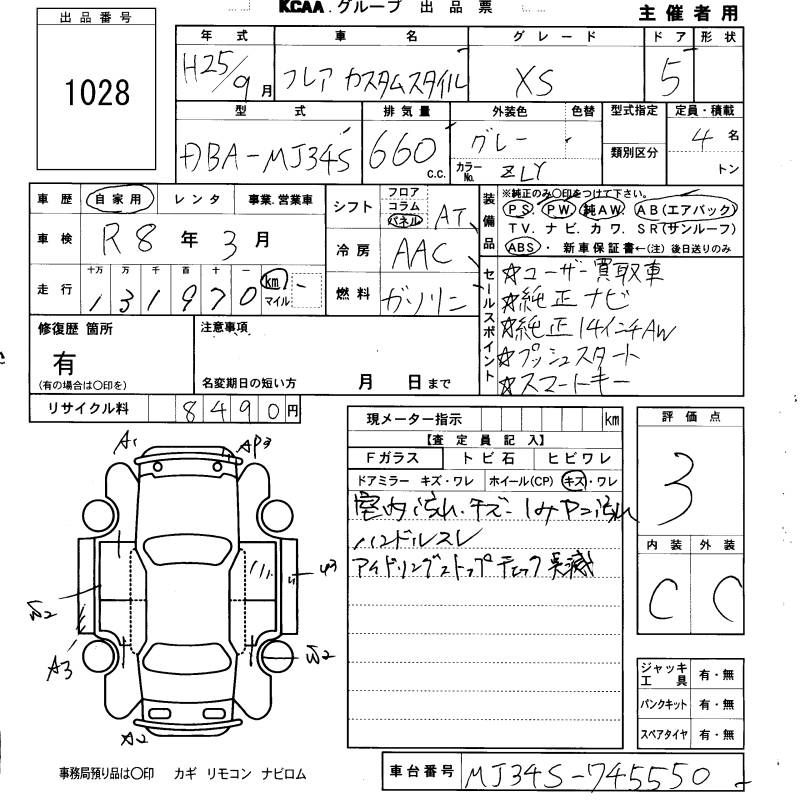 KCAA.グループ 出品票
主催者用
出品番号
1028
年式 車名 グレード ドア 形状
H25/9月 フレア カスタムスタイル XS 5
型式 排気量 外装色 色替 型式指定 定員・積載
DBA-MJ34S 660 C.C. グレー カラーNo. ZLY 類別区分 4名
トン
車歴 自家用 レンタ 事業.営業車
車検 R8年3月
走行 十万 万 千 百 十 一
131970 km マイル
シフト フロア コラム パネル AT
冷房 AAC
燃料 ガソリン
装備品 ※純正のみ〇印をつけて下さい。
PS. PW. 純AW. AB(エアバック)
TV. ナビ. カワ. SR(サンルーフ)
ABS・ 新車保証書←(注) 後日送りのみ
セールスポイント
☆ユーザー買取車
☆純正ナビ
☆純正14インチAW
☆プッシュスタート
☆スマートキー
修復歴 箇所
有
(有の場合は〇印を)
注意事項
名変期日の短い方 月 日まで
リサイクル料 8490円
現メーター指示 km
【査定員記入】
Fガラス トビ石 ヒビワレ
ドアミラー キズ・ワレ ホイール(CP) キズ・ワレ
室内汚れ・キズ・シミヤニ汚れ
ハンドルスレ
アイドリングストップチェック点滅
評価点
3
内装 外装
C C
A1
AP3
U2
A3
A2
U2
ジャッキ工具 有・無
パンクキット 有・無
スペアタイヤ 有・無
事務局預り品は〇印 カギ リモコン ナビロム
車台番号 MJ34S-745550